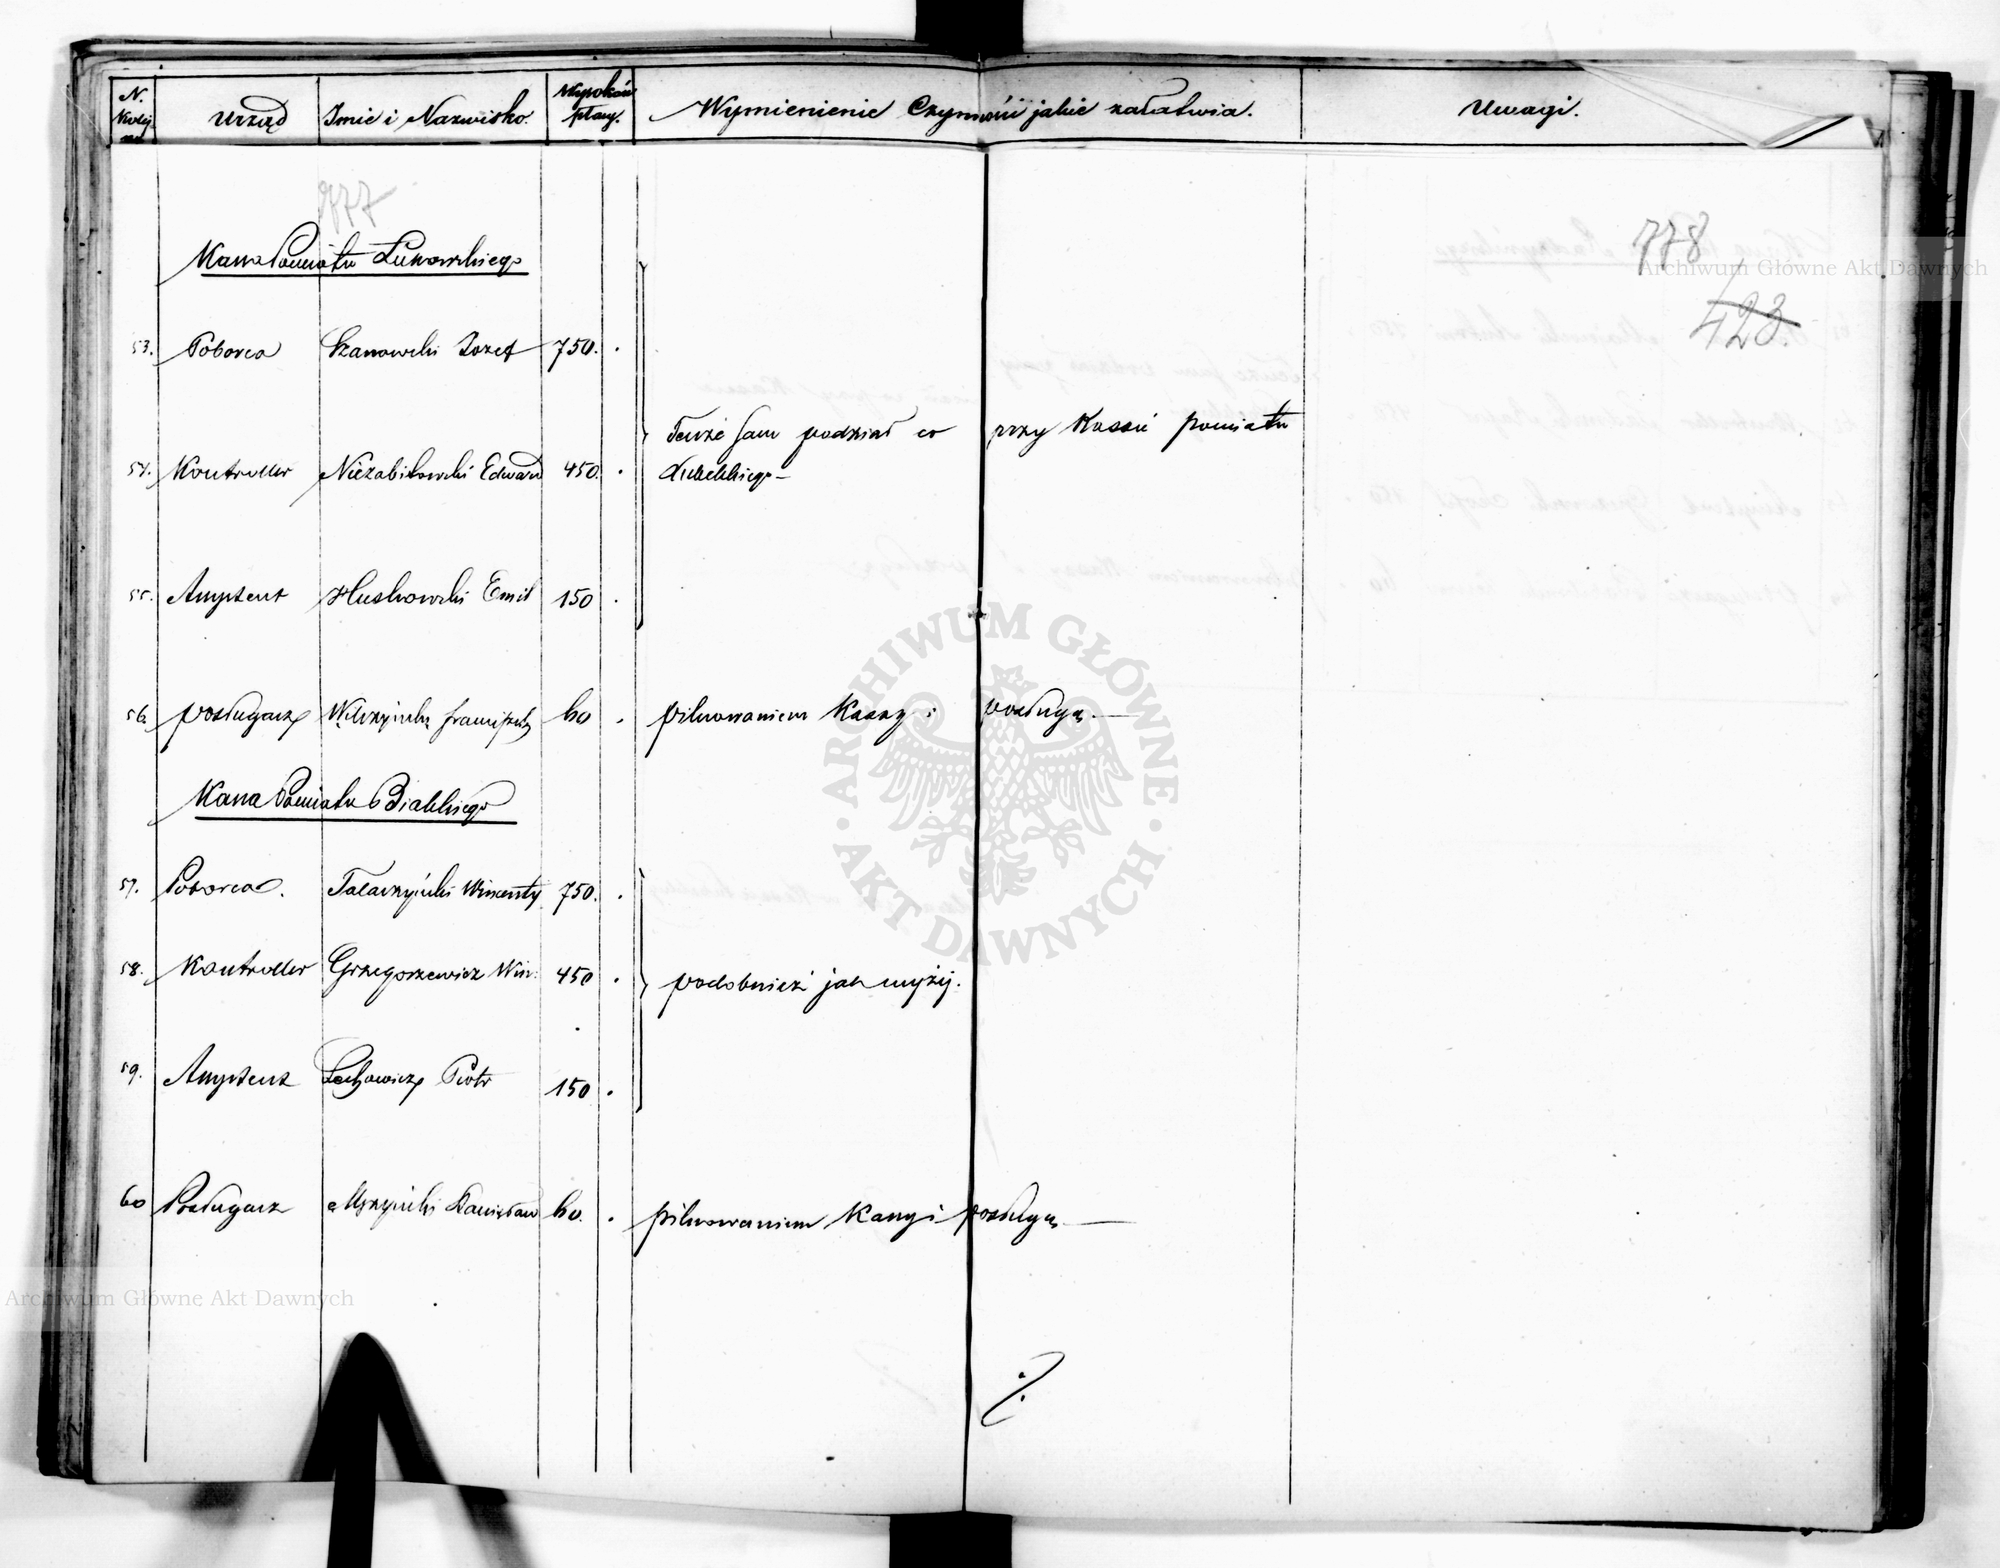 N. Kolej
Urząd
Imie i Nazwisko
Wysokość płacy.
Wymienienie Czynności jakie załatwia.
Uwagi.
777
778
423.
Kassa Powiatu Łukowskiego
53. Poborca Szanowski Jozef 750.
54. Kontroller Niezabitowski Edward 450.
Tenże sam podział co przy Kassie powiatu
Lubelskiego
55. Assystent Huskowski Emil 150
56 posługacz Franciszek 60
pilnowaniem Kassy i posługą.
Kassa Powiatu Bialskiego
57. Poborca. Tatarzyński Wincenty 750.
58. Kontroller Grzegorzewicz Win: 450
podobnież jak wyżéj.
59. Assystent Lechowicz Piotr 150
60 Posługacz Stanisław 60.
pilnowaniem Kassy i posługą
Archiwum Główne Akt Dawnych
ARCHIWUM GŁÓWNE · AKT DAWNYCH ·
Archiwum Główne Akt Dawnych